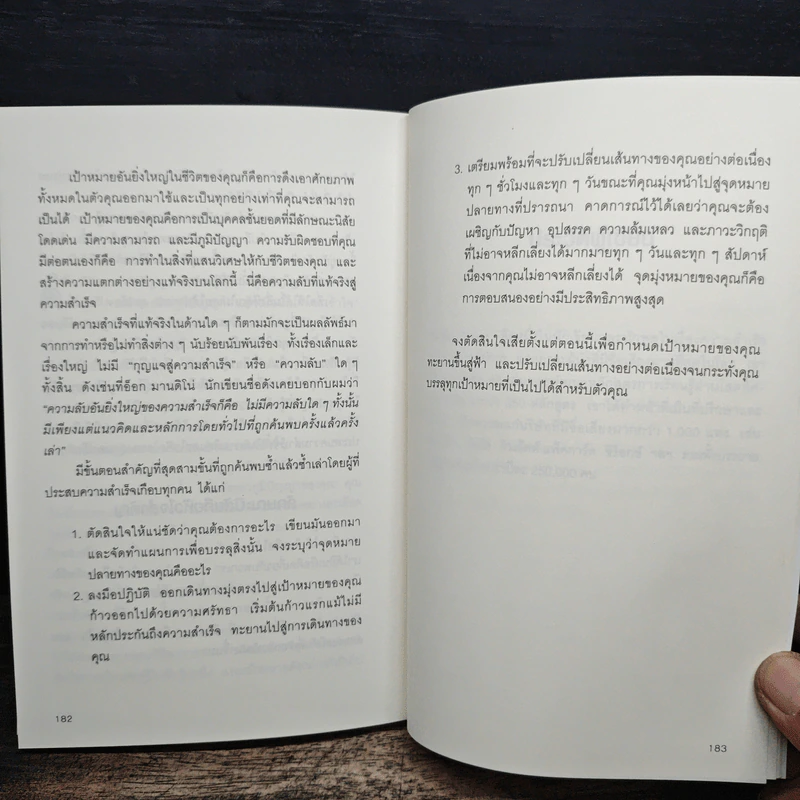 เป้าหมายอันยิ่งใหญ่ในชีวิตของคุณก็คือการดึงเอาศักยภาพ
ทั้งหมดในตัวคุณออกมาใช้และเป็นทุกอย่างเท่าที่คุณจะสามารถ
เป็นได้ เป้าหมายของคุณคือการเป็นบุคคลชั้นยอดที่มีลักษณะนิสัย
โดดเด่น มีความสามารถ และมีภูมิปัญญา ความรับผิดชอบที่คุณ
มีต่อตนเองก็คือ การทำในสิ่งที่แสนวิเศษให้กับชีวิตของคุณ และ
สร้างความแตกต่างอย่างแท้จริงบนโลกนี้ นี่คือความลับที่แท้จริงสู่
ความสำเร็จ
ความสำเร็จที่แท้จริงในด้านใด ๆ ก็ตามมักจะเป็นผลลัพธ์มา
จากการทำหรือไม่ทำสิ่งต่าง ๆ นับร้อยนับพันเรื่อง ทั้งเรื่องเล็กและ
เรื่องใหญ่ ไม่มี “กุญแจสู่ความสำเร็จ” หรือ “ความลับ” ใด ๆ
ทั้งสิ้น ดังเช่นที่อ็อก มานดิโน่ นักเขียนชื่อดังเคยบอกกับผมว่า
“ความลับอันยิ่งใหญ่ของความสำเร็จก็คือ ไม่มีความลับใด ๆ ทั้งนั้น
มีเพียงแต่แนวคิดและหลักการโดยทั่วไปที่ถูกค้นพบครั้งแล้วครั้ง
เล่า”
มีขั้นตอนสำคัญที่สุดสามขั้นที่ถูกค้นพบซ้ำแล้วซ้ำเล่าโดยผู้ที่
ประสบความสำเร็จเกือบทุกคน ได้แก่
1. ตัดสินใจให้แน่ชัดว่าคุณต้องการอะไร เขียนมันออกมา
และจัดทำแผนการเพื่อบรรลุสิ่งนั้น จงระบุว่าจุดหมาย
ปลายทางของคุณคืออะไร
2. ลงมือปฏิบัติ ออกเดินทางมุ่งตรงไปสู่เป้าหมายของคุณ
ก้าวออกไปด้วยความศรัทธา เริ่มต้นก้าวแรกแม้ไม่มี
หลักประกันถึงความสำเร็จ ทะยานไปสู่การเดินทางของ
คุณ
182
3. เตรียมพร้อมที่จะปรับเปลี่ยนเส้นทางของคุณอย่างต่อเนื่อง
ทุก ๆ ชั่วโมงและทุก ๆ วันขณะที่คุณมุ่งหน้าไปสู่จุดหมาย
ปลายทางที่ปรารถนา คาดการณ์ไว้ได้เลยว่าคุณจะต้อง
เผชิญกับปัญหา อุปสรรค ความล้มเหลว และภาวะวิกฤติ
ที่ไม่อาจหลีกเลี่ยงได้มากมายทุก ๆ วันและทุก ๆ สัปดาห์
เนื่องจากคุณไม่อาจหลีกเลี่ยงได้ จุดมุ่งหมายของคุณก็คือ
การตอบสนองอย่างมีประสิทธิภาพสูงสุด
จงตัดสินใจเสียตั้งแต่ตอนนี้เพื่อกำหนดเป้าหมายของคุณ
ทะยานขึ้นสู่ฟ้า และปรับเปลี่ยนเส้นทางอย่างต่อเนื่องจนกระทั่งคุณ
บรรลุทุกเป้าหมายที่เป็นไปได้สำหรับตัวคุณ
183